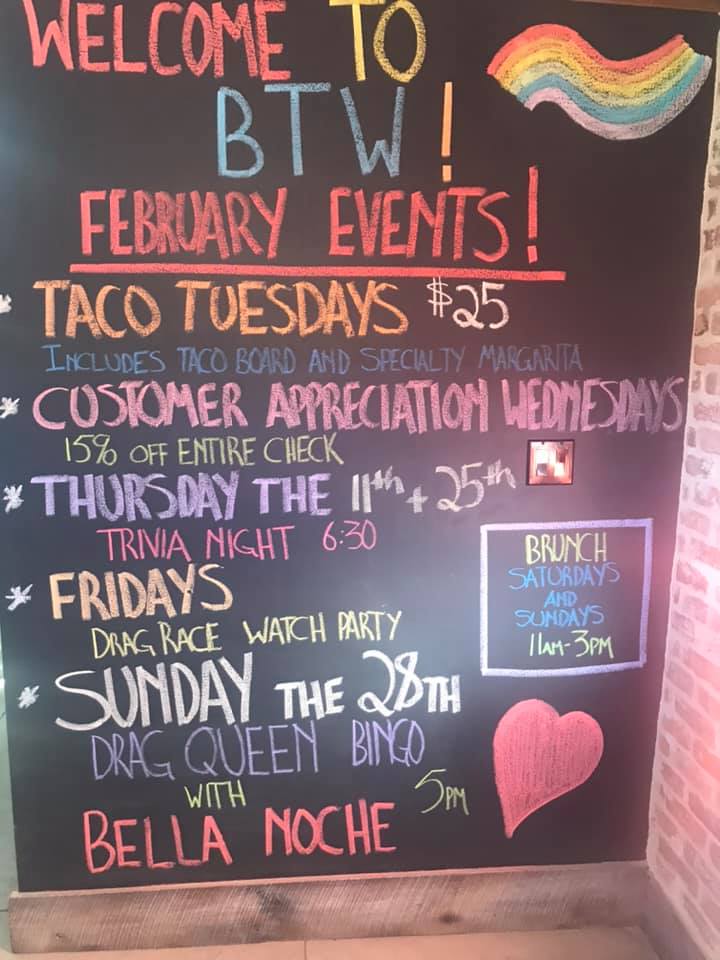 WELCOME TO
BTW!
FEBRUARY EVENTS!
* TACO TUESDAYS $25
INCLUDES TACO BOARD AND SPECIALTY MARGARITA
* CUSTOMER APPRECIATION WEDNESDAYS
15% OFF ENTIRE CHECK
* THURSDAY THE 11th + 25th
TRIVIA NIGHT 6:30
* FRIDAYS
DRAG RACE WATCH PARTY
* SUNDAY THE 28TH
DRAG QUEEN BINGO
WITH 5PM
BELLA NOCHE
BRUNCH
SATURDAYS
AND
SUNDAYS
11AM-3PM